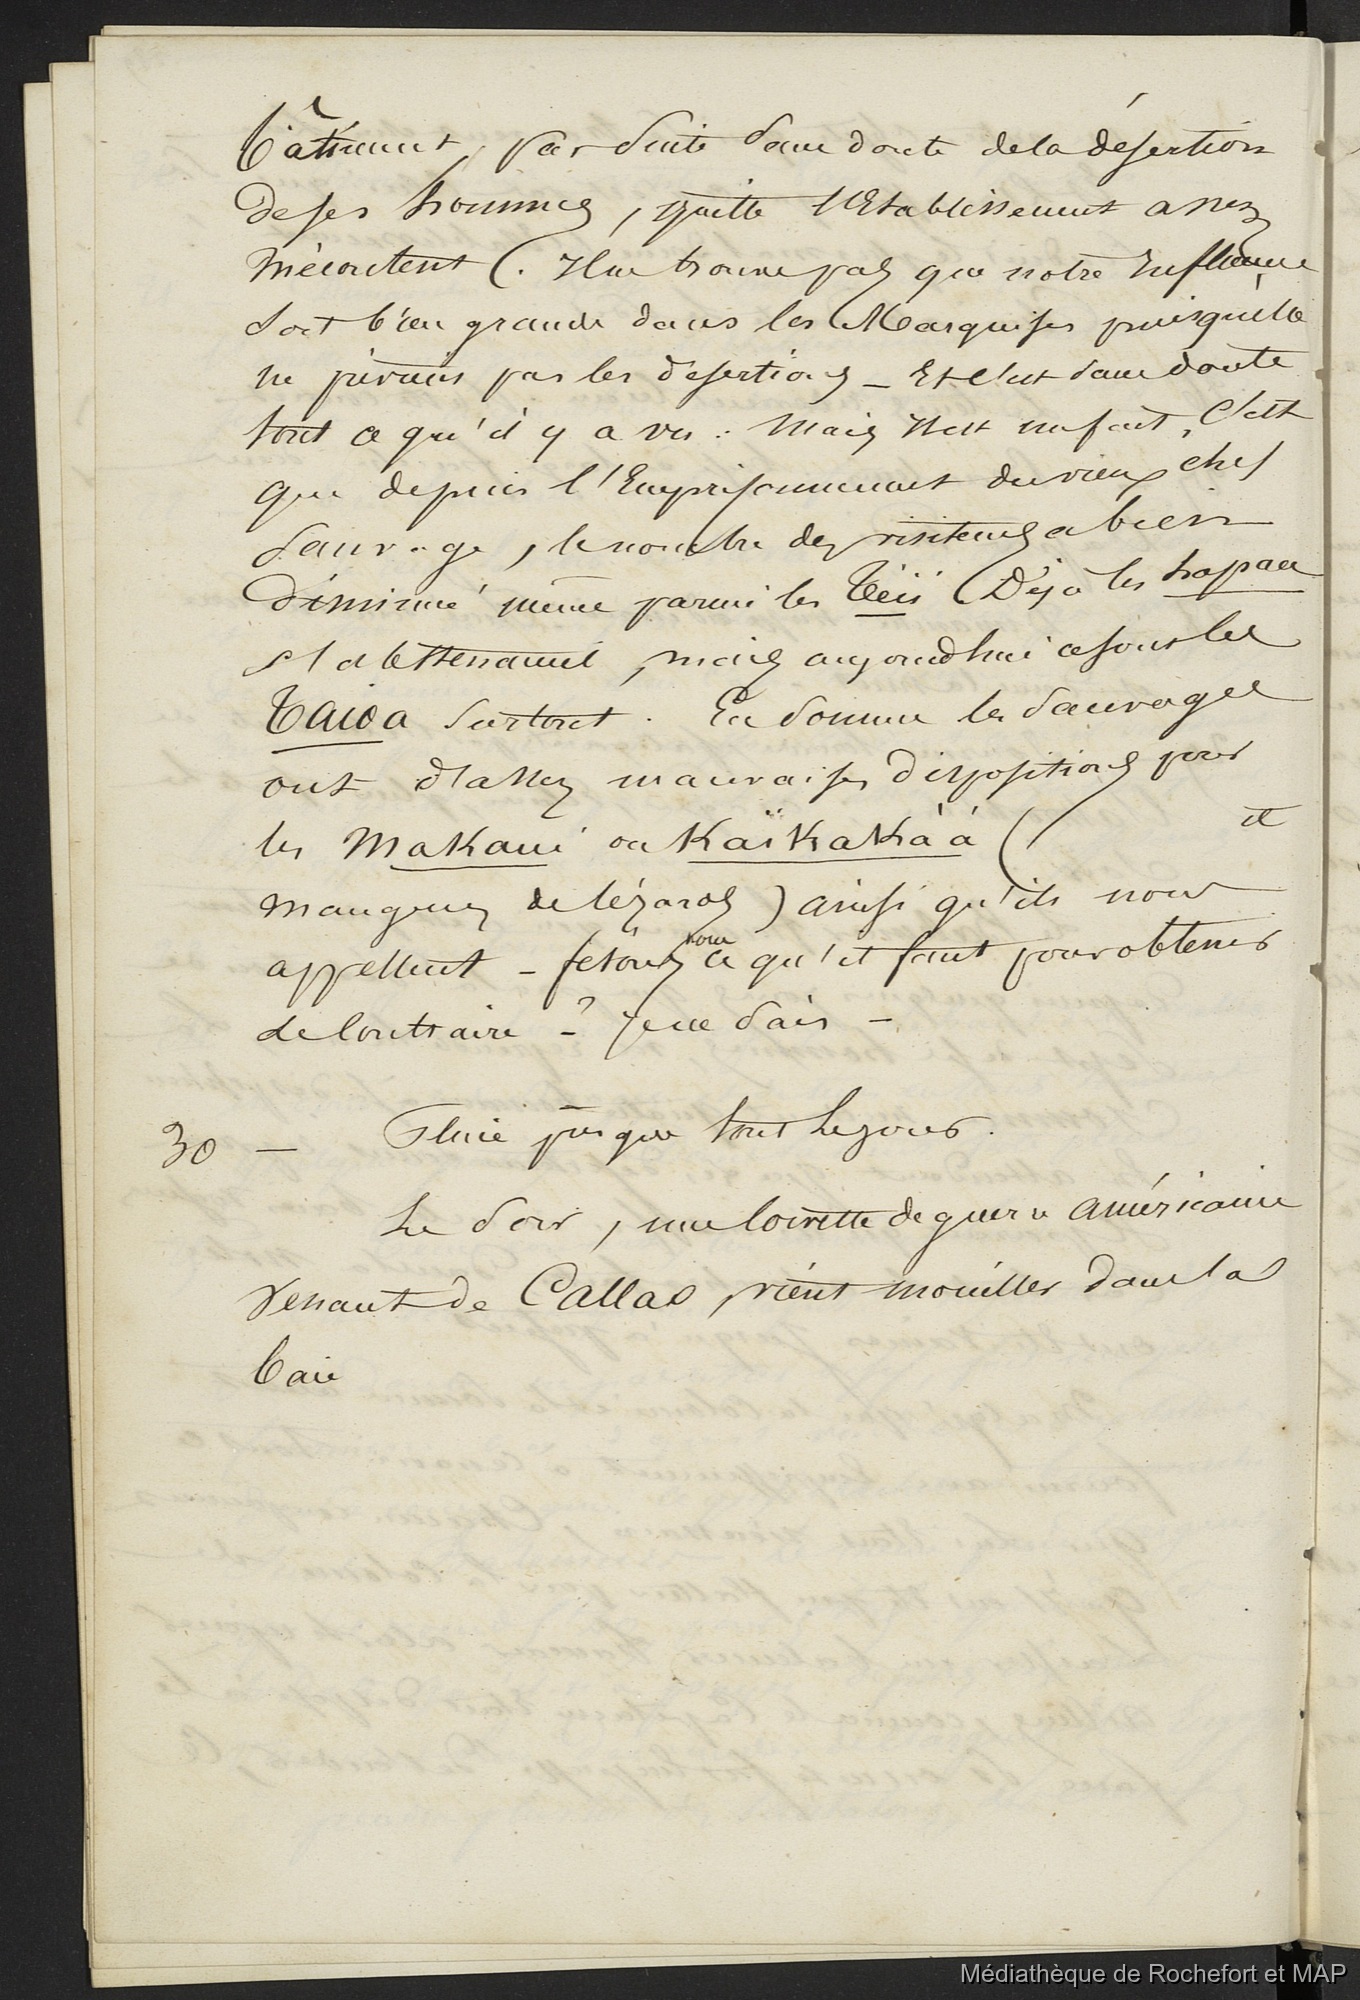 bâtiment, par suite sans doute de la désertion
de ses hommes, quitte l'Etablissement assez
mécontent (. Il ne trouve pas que notre Influence
soit bien grande dans les Marquises puisqu'elle
ne prévins pas les désertions _ Et c'est sans doute
tout ce qu'il y a vu : Mais Il est un fait, C'est
que depuis l'Emprisonnement du vieux chef
sauvage, le nombre des visiteurs a bien
diminué même parmi les Teïi (Déjà les hapaa
s'abstenaient, mais aujourdhui ce sont les
Taioa surtout. En somme les Sauvages
ont d'assez mauvaises dispositions pour
les Makaui ou Kaïkakàà (
mangeurs de lézards) ainsi qu'ils nous
appellent _ fesons nous ce qu'il faut pour obtenir
le Contraire _ ? Je ne sais _
30 — Pluie presque tout le jour.
Le Soir, une Corvette de guerre américaine
venant de Callao, vient mouiller dans la
baie
Médiathèque de Rochefort et MAP